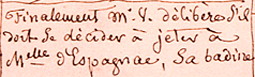 Finalement Mr. V. délibère s'il
doit se décider à jeter à
Melle d'Espagnac, sa badine